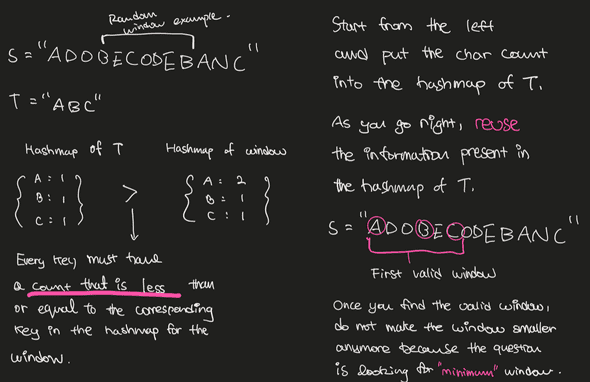 Random
window example.
S = "ADOBECODEBANC"
T = "ABC"
Hashmap of T
Hashmap of window
{ A : 1
B : 1
C : 1 }
>
{ A : 2
B : 1
C : 1 }
Every key must have
a count that is less than
or equal to the corresponding
key in the hashmap for the
window.
Start from the left
and put the char count
into the hashmap of T.
As you go right, reuse
the information present in
the hashmap of T.
S = "ADOBECODEBANC"
First valid window
Once you find the valid window,
do not make the window smaller
anymore because the question
is looking for "minimum" window.